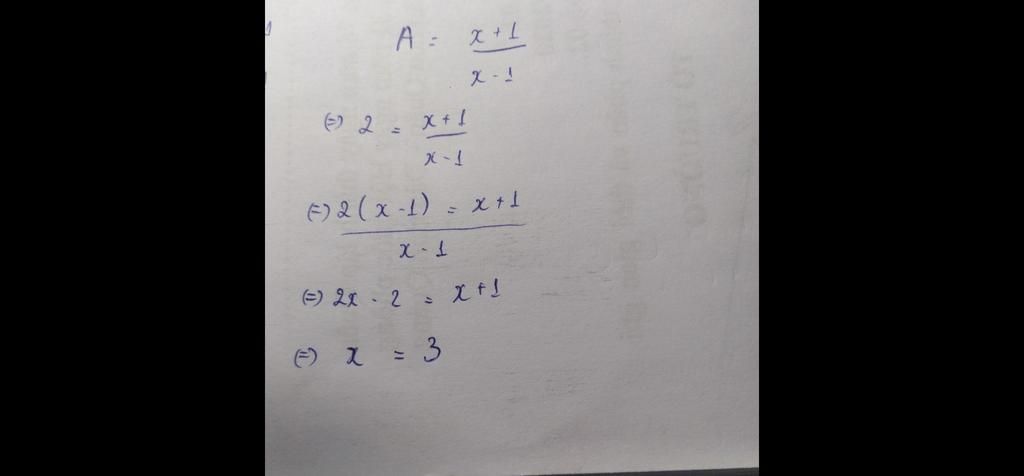 A = x + 1 / x - 1
(=) 2 = x + 1 / x - 1
(=) 2 ( x - 1 ) = x + 1 / x - 1
(=) 2x - 2 = x + 1
(=) x = 3